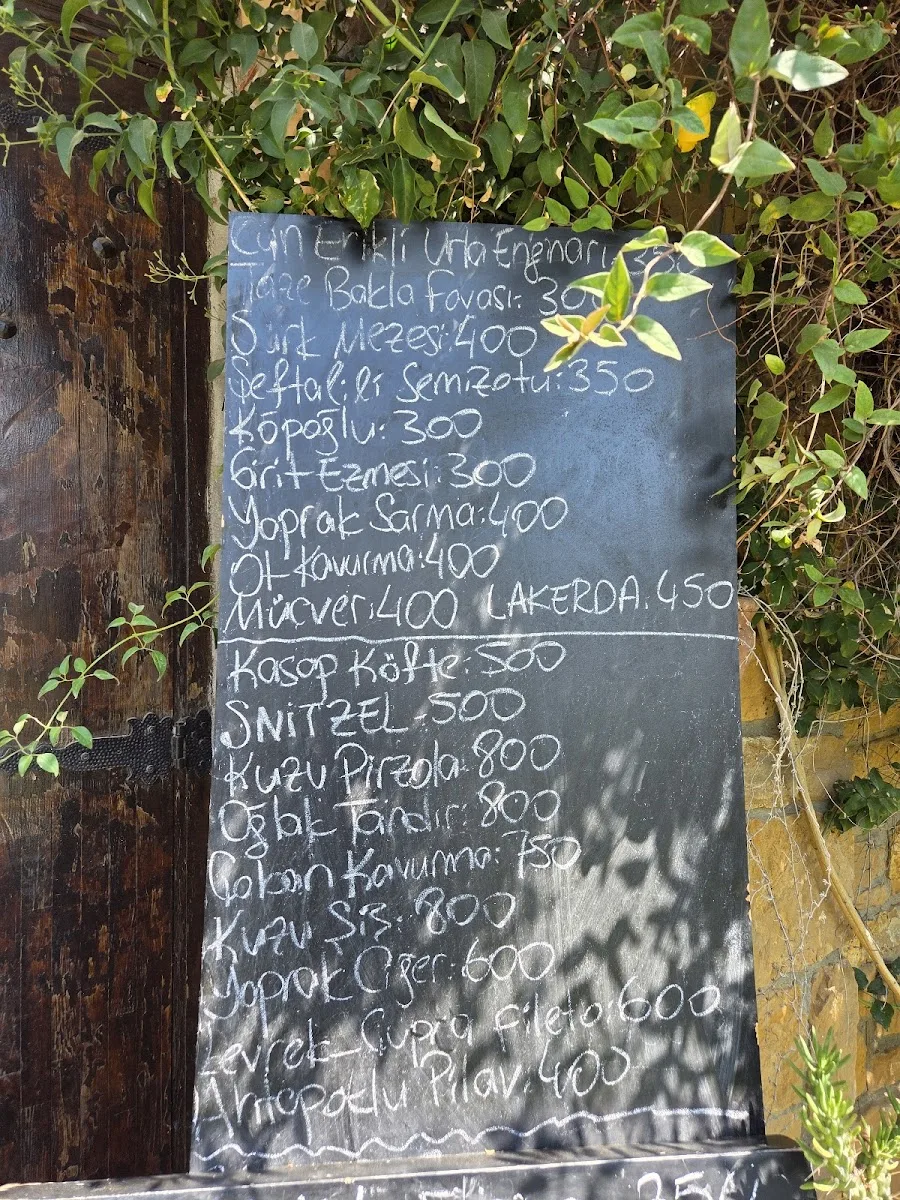 Can Erikli Urla Enginarı: 350
Taze Bakla favası: 300
Sürk Mezesi: 400
Şeftalili Semizotu: 350
Köpoğlu: 300
Girit Ezmesi: 300
Yaprak Sarma: 400
Ot Kavurma: 400
Mücver: 400 LAKERDA: 450
Kasap Köfte: 500
ŞNİTZEL - 500
Kuzu Pirzola: 800
Oğlak Tandır: 800
Çoban Kavurma: 750
Kuzu Şiş: 800
Yaprak Ciğer: 600
Levrek_Çupra fileto: 600
Ahtapotlu Pilav: 400